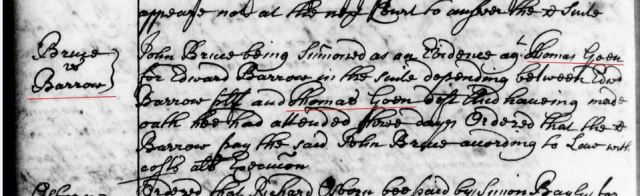 appeare not at the next Court to answer the sd suite
Bruce
vs
Barrow
John Bruce being Sumoned as an Evidence agt Thomas Goen
for Edward Barrow in the suite depending between Edwd
Barrow pltf and Thomas Goen deft And haveing made
oath hee had attended three days Ordered that the sd
Barrow pay the said John Bruce acording to Law with
costs als Execution
Ordered that Richard Osborn bee paid by Simon Bayly for